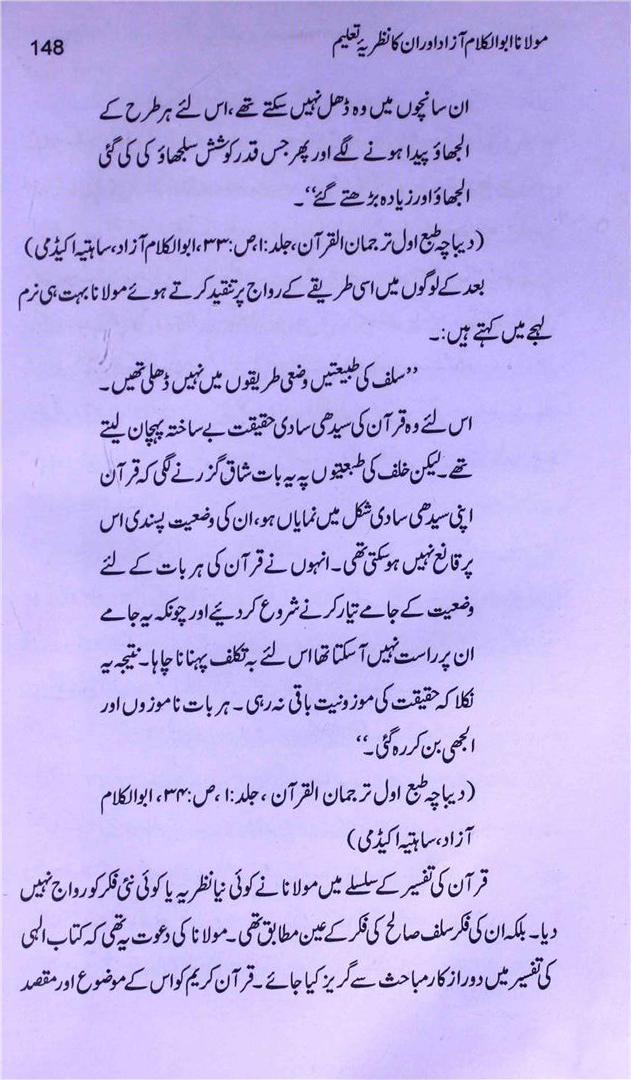 مولانا ابوالکلام آزاد اور ان کا نظریۂ تعلیم 148
ان سانچوں میں وہ ڈھل نہیں سکتے تھے، اس لئے ہر طرح کے
الجھاؤ پیدا ہونے لگے اور پھر جس قدر کوشش سلجھاؤ کی کی گئی
الجھاؤ اور زیادہ بڑھتے گئے‘‘۔
(دیباچہ طبع اول ترجمان القرآن، جلد:۱، ص:۳۳، ابوالکلام آزاد، ساہتیہ اکیڈمی)
بعد کے لوگوں میں اسی طریقے کے رواج پر تنقید کرتے ہوئے مولانا بہت ہی نرم
لہجے میں کہتے ہیں:۔
’’سلف کی طبیعتیں وضعی طریقوں میں نہیں ڈھلی تھیں۔
اس لئے وہ قرآن کی سیدھی سادی حقیقت بے ساختہ پہچان لیتے
تھے۔ لیکن خلف کی طبعیتوں پہ یہ بات شاق گزرنے لگی کہ قرآن
اپنی سیدھی سادی شکل میں نمایاں ہو، ان کی وضعیت پسندی اس
پر قانع نہیں ہو سکتی تھی۔ انہوں نے قرآن کی ہر بات کے لئے
وضعیت کے جامے تیار کرنے شروع کر دیئے اور چونکہ یہ جامے
ان پر راست نہیں آ سکتا تھا اس لئے بہ تکلف پہنانا چاہا۔ نتیجہ یہ
نکلا کہ حقیقت کی موزونیت باقی نہ رہی۔ ہر بات ناموزوں اور
الجھی بن کر رہ گئی۔‘‘
(دیباچہ طبع اول ترجمان القرآن ، جلد:۱، ص:۳۴، ابوالکلام
آزاد، ساہتیہ اکیڈمی)
قرآن کی تفسیر کے سلسلے میں مولانا نے کوئی نیا نظریہ یا کوئی نئی فکر کو رواج نہیں
دیا۔ بلکہ ان کی فکر سلف صالح کی فکر کے عین مطابق تھی۔ مولانا کی دعوت یہ تھی کہ کتاب الہی
کی تفسیر میں دور از کار مباحث سے گریز کیا جائے۔ قرآن کریم کو اس کے موضوع اور مقصد